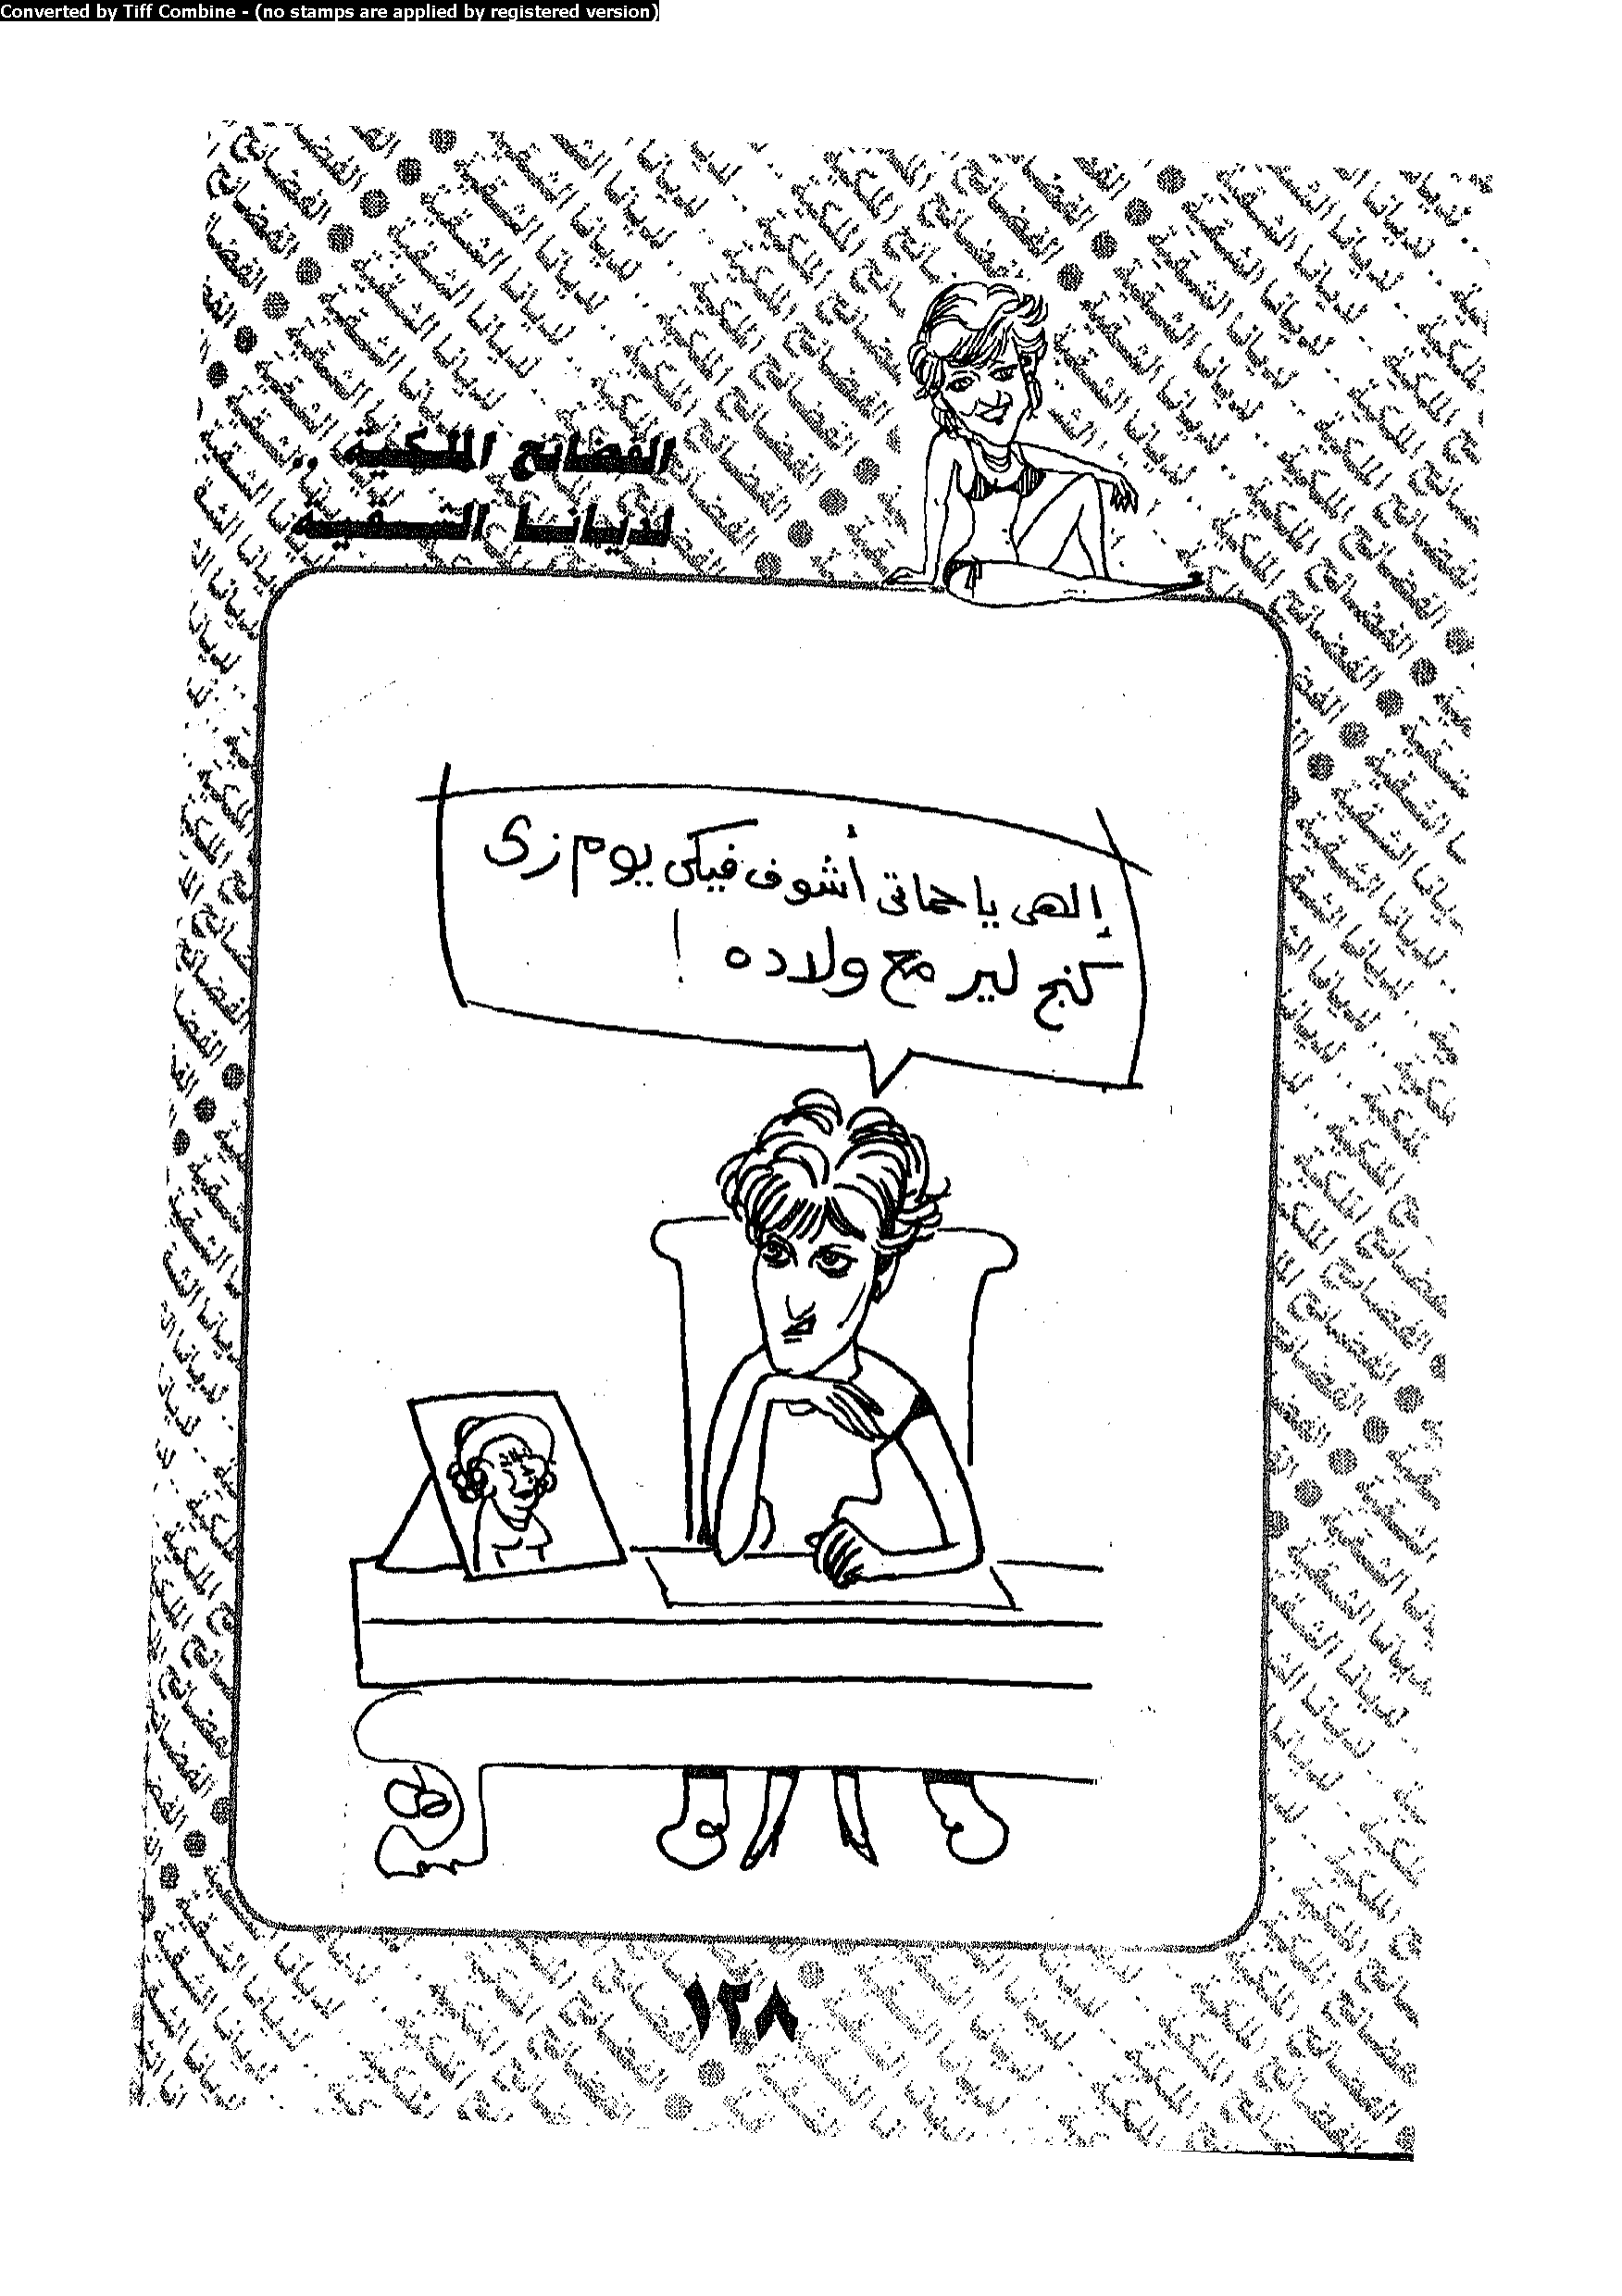 Converted by Tiff Combine - (no stamps are applied by registered version)
الفضائح الملكية ..
لديانا الشقية
إلهى يا حماتى أشوف فيكى يوم زى
كنج لير مع ولاده !
١٢٨